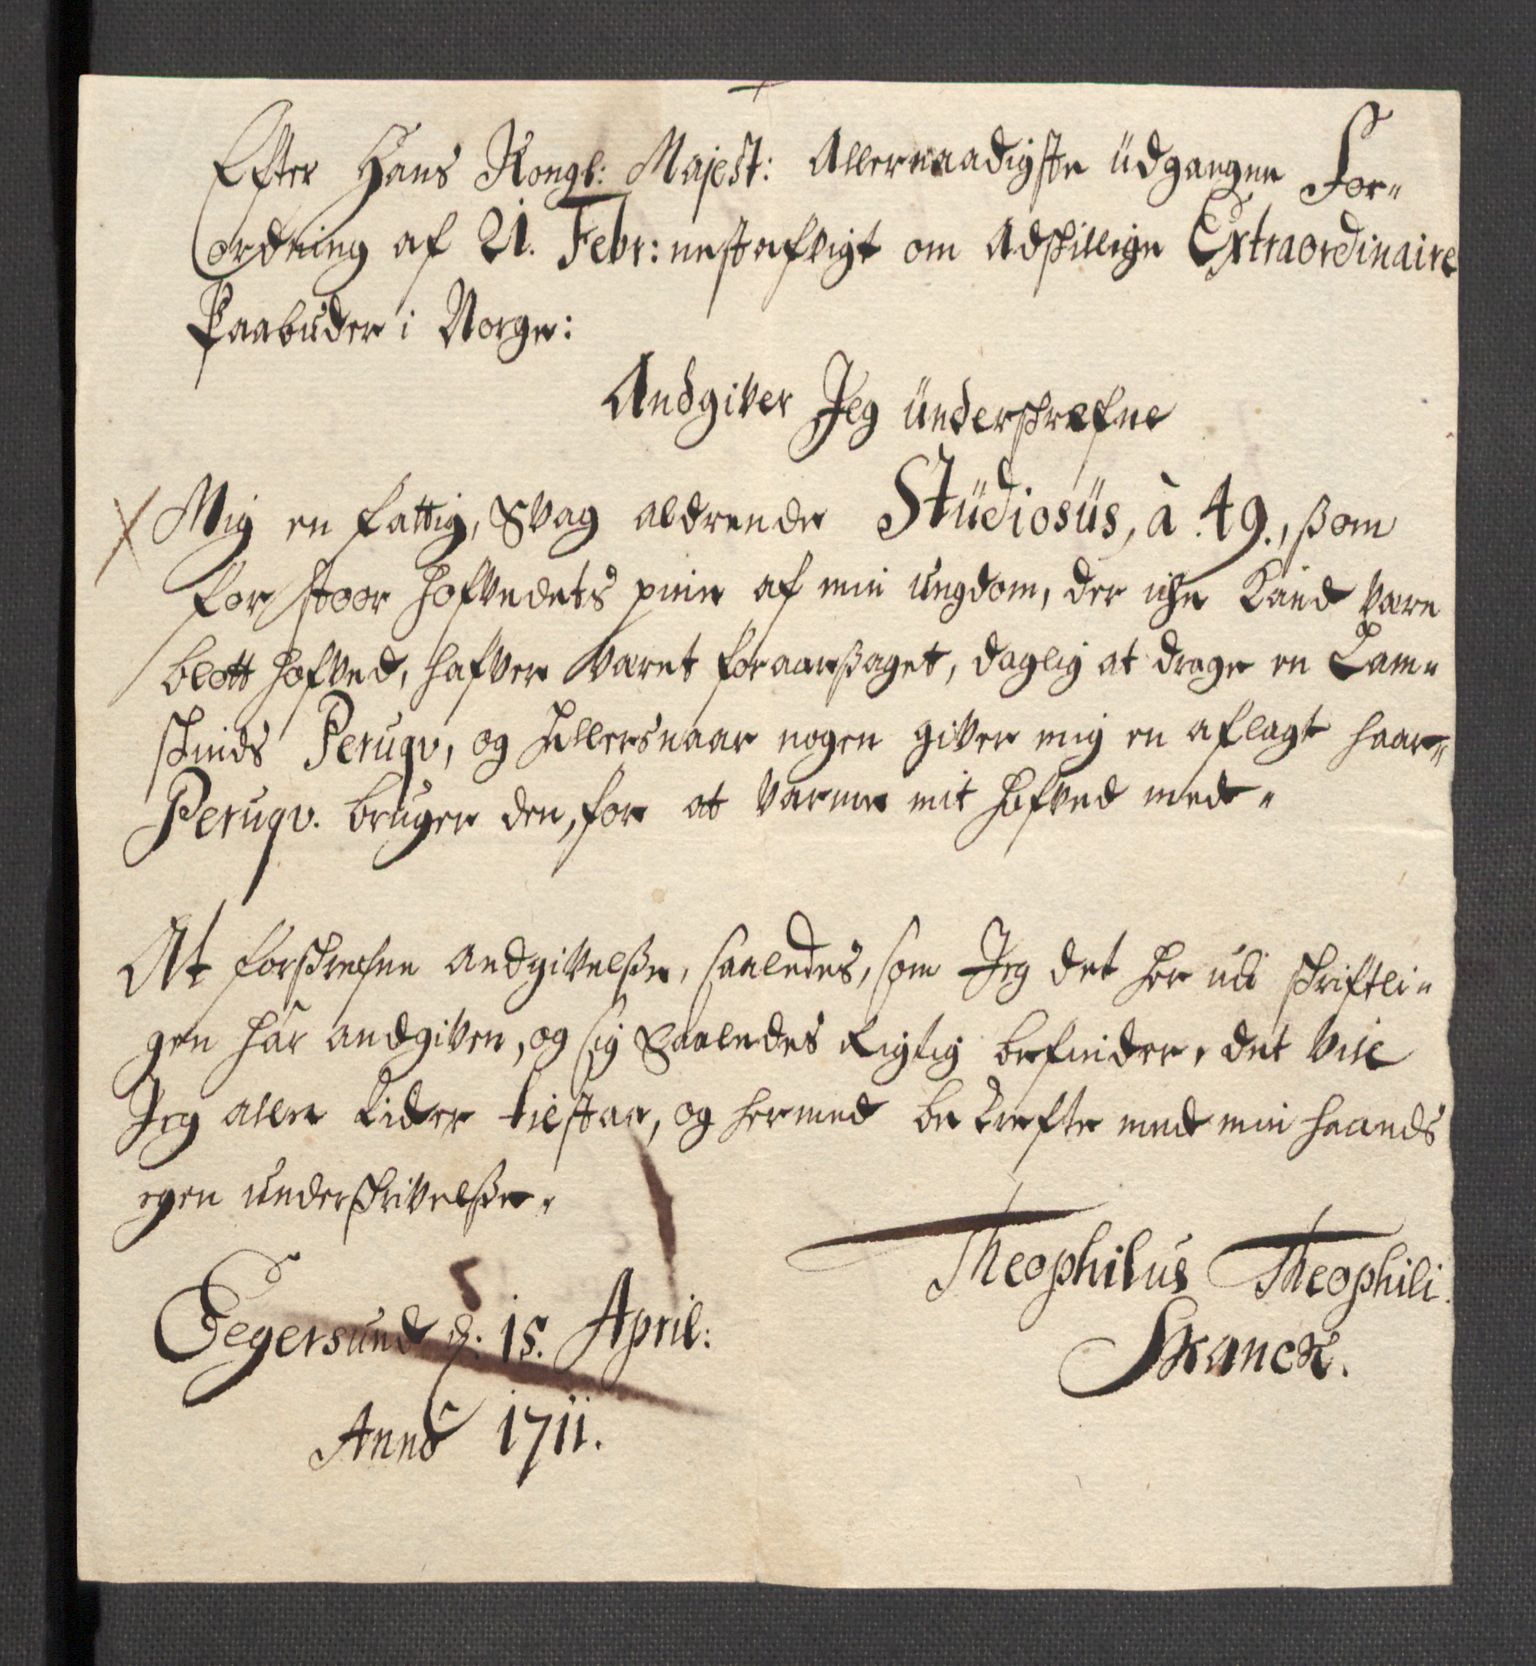 Efter Hans Kongl: Majest: Allernaadigste üdgangne For-
ordning af 21. Febr: nestafvigt om Adskillige Extraordinaire
Paabuder i Norge:
Andgiver Jeg ünderskrefne
Mig en fattig, Svag aldrende Stüdiosüs, à 49., som
for stoor hofvedets piine af min ungdom, der iche kand være
blott hofved, hafver været foraarsaget, daglig at drage en Lam-
skinds Peruqv, og Hellers naar nogen giver mig en aflagt haar-
Peruqv. bruger den, for at varme mit hofved med.
At forskrefne andgivelsse, saaledes, som Jeg det her udi skriftli-
gen har andgiven, og sig Saaledes Rigtig befinder, det vil
Jeg alle tider tilstaa, og hermed bekrefte med min haands
egen underskrivelsse.
Theophilus Theophili
Skanck.
Eegersund d: 15. April:
Anno 1711.